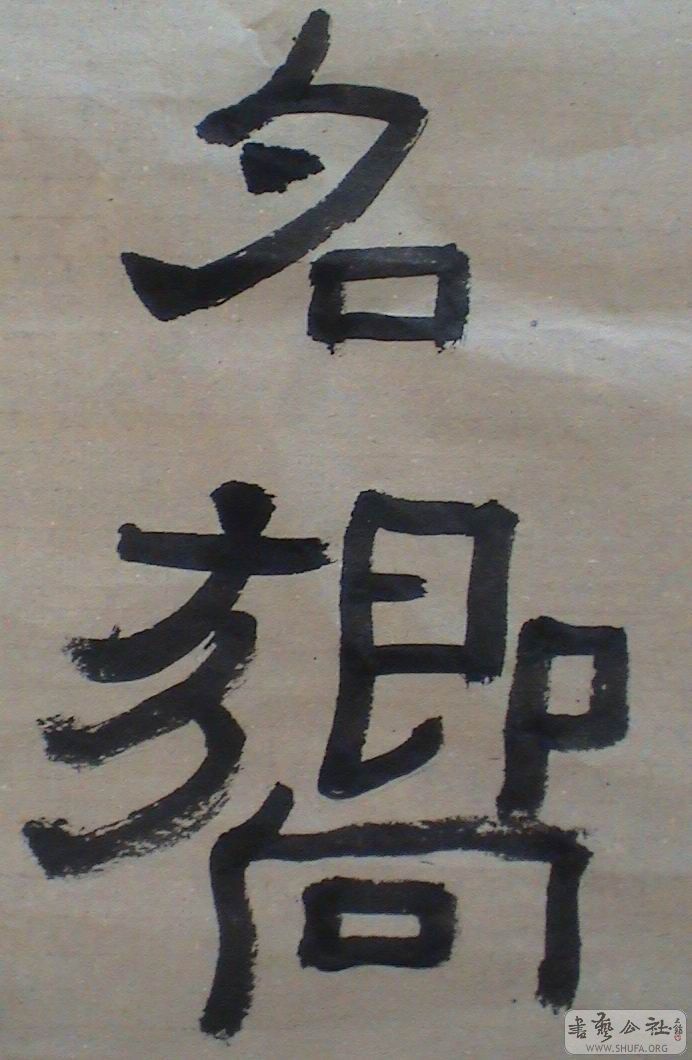 名
嚮
書藝公社
WWW.SHUFA.ORG